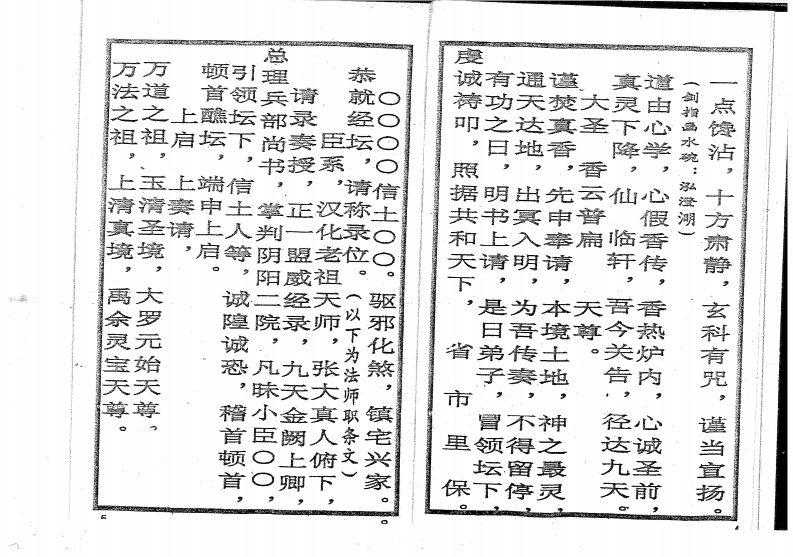 一点馋沾，十方肃静，玄科有咒，谨当宣扬。
（剑指画水碗：泓澄湖）
道由心学，心假香传，香热炉内，心诚圣前，
真灵下降，仙　临轩，吾今关告，径达九天。
大圣　香云普扁　天尊。
谨焚真香，先申奉请，本境土地，神之最灵，
通天达地，出冥入明，为吾传奏，不得留停，
有功之日，明书上请，是日弟子，冒领坛下，
虔诚祷叩，照据共和天下，　省　市　里　保。
〇〇〇〇信士〇〇。驱邪化煞，镇宅兴家。。
恭就经坛，请称录位。（以下为法师职条文）
臣系，汉化老祖天师，张大真人俯下，
请录奏授，正一盟威经录，九天金阙上卿，
总理兵部尚书，掌判阴阳二院，凡昧小臣〇〇，
引领坛下，信士人等，诚隍诚恐，稽首顿首，
顿首醮坛，端申上启。
上启　上奏请，
万道之祖，玉清圣境，大罗元始天尊，
万法之祖，上清真境，禹余灵宝天尊。
5